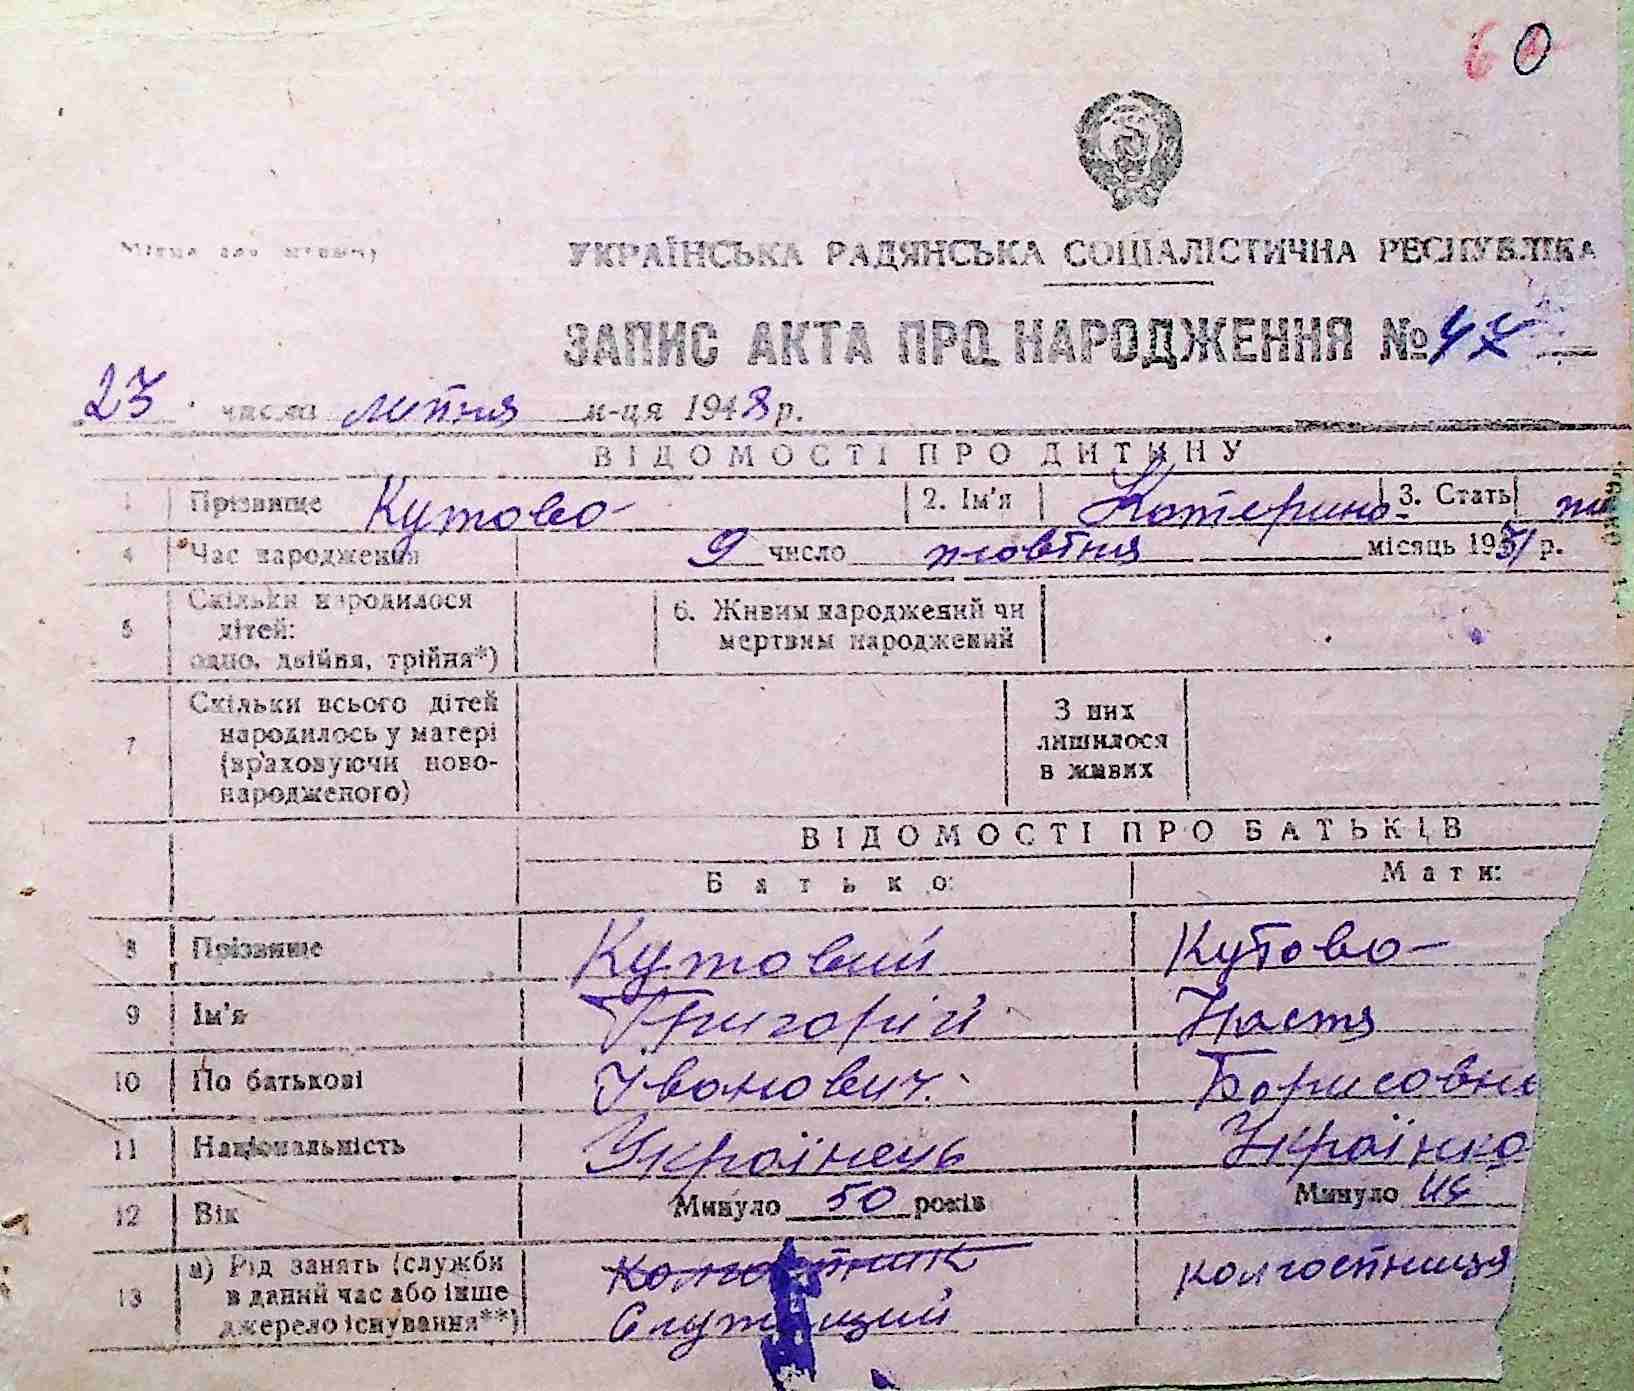 60
Місце для штампу
УКРАЇНСЬКА РАДЯНСЬКА СОЦІАЛІСТИЧНА РЕСПУБЛІКА
ЗАПИС АКТА ПРО НАРОДЖЕННЯ №
23 числа лютня м-ця 1948 р.
ВІДОМОСТІ ПРО ДИТИНУ
1 Прізвище Кутова 2. Ім'я Катерина 3. Стать жі
4 Час народження 9 число жовтня місяць 1931 р.
5 Скільки народилося дітей: одно, двійня, трійня*) 6. Живим народжений чи мертвим народжений
7 Скільки всього дітей народилось у матері (враховуючи новонародженого) З них лишилося в живих
ВІДОМОСТІ ПРО БАТЬКІВ
Батько: Мати:
8 Прізвище Кутовий Кутова
9 Ім'я Григорій Настя
10 По батькові Іванович. Борисовна
11 Національність Українець Українка
12 Вік Минуло 50 років Минуло
13 а) Рід занять (служби в даний час або інше джерело існування**) Колгоспник Служащий колгоспниця